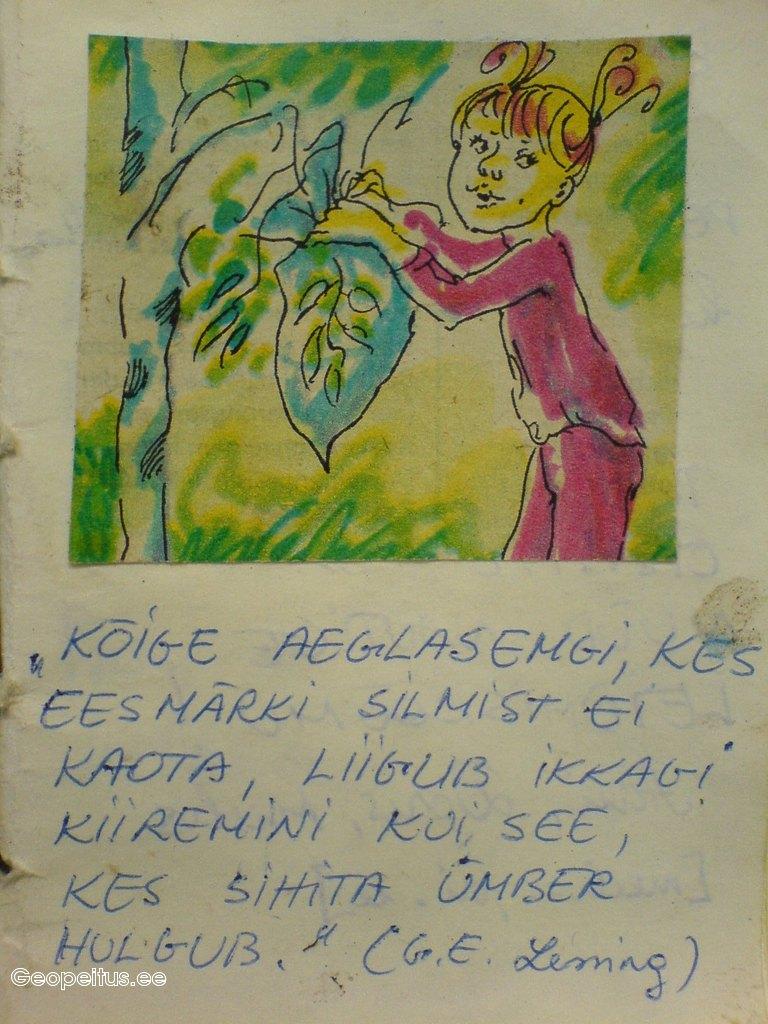 „KÕIGE AEGLASEMGI, KES
EESMÄRKI SILMIST EI
KAOTA, LIIGUB IKKAGI
KIIREMINI KUI SEE,
KES SIHITA ÜMBER
HULGUB." (G.E. Lessing)
Geopeitus.ee